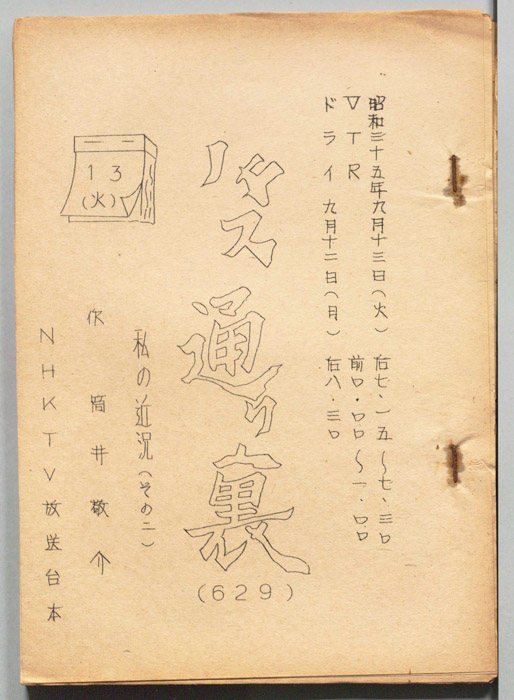 昭和三十五年九月十三日(火) 右七・一五〜七・三〇
VTR 前〇・〇〇〜一・〇〇
ドライ 九月十二日(月) 右八・三〇
バス通り裏
(629)
私の近況(その二)
作 筒井敬介
NHKTV放送台本
13
(火)